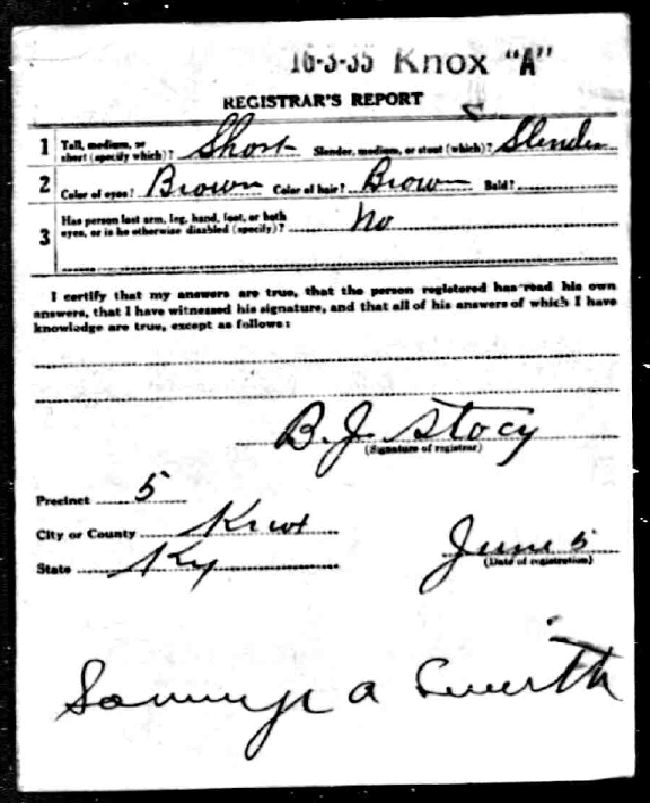 16-3-35 Knox "A"
REGISTRAR'S REPORT
1 Tall, medium, or short (specify which)? Short Slender, medium, or stout (which)? Slender
2 Color of eyes? Brown Color of hair? Brown Bald?
3 Has person lost arm, leg, hand, foot, or both eyes, or is he otherwise disabled (specify)? No
I certify that my answers are true, that the person registered has read his own
answers, that I have witnessed his signature, and that all of his answers of which I have
knowledge are true, except as follows:
B. J. Stacy
(Signature of registrar)
Precinct 5
City or County Knox
State Ky
June 5
(Date of registration)
A Smith